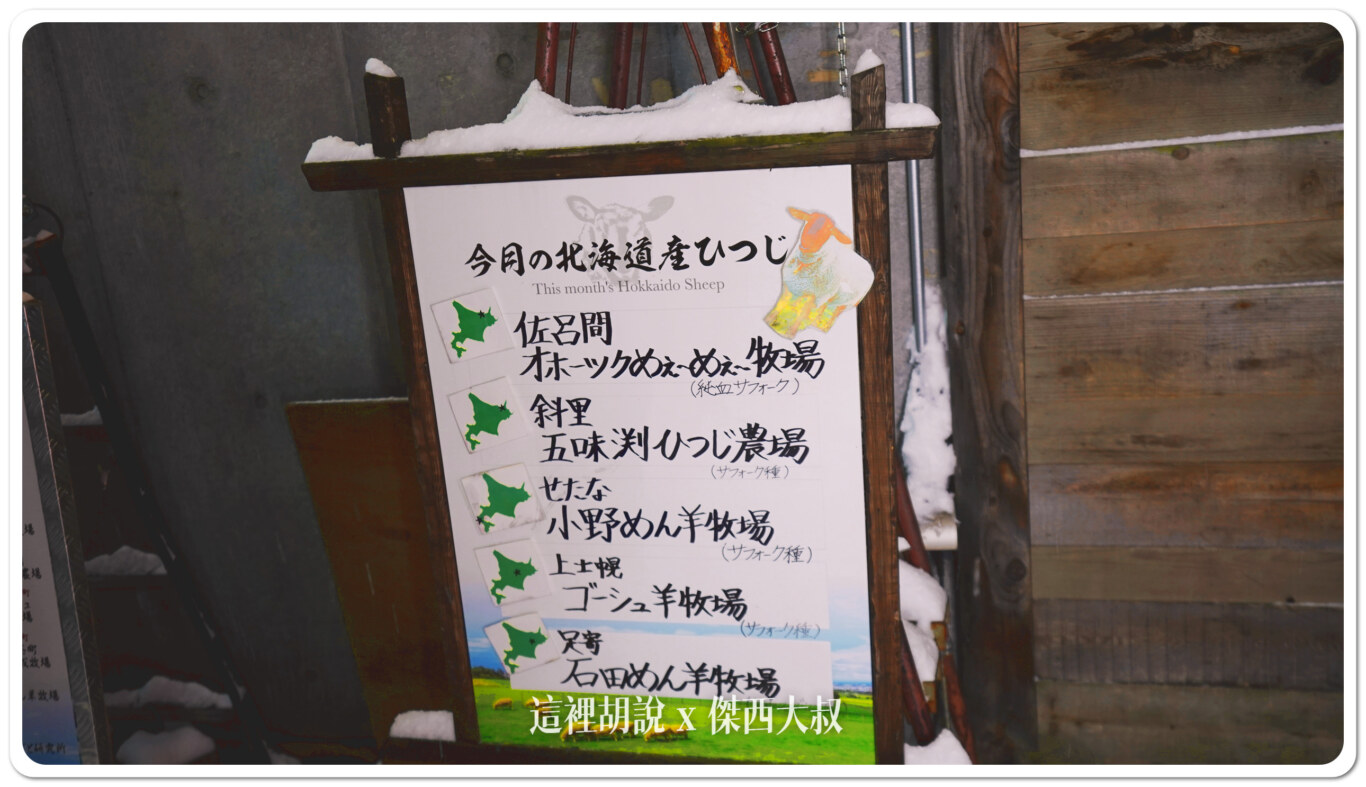 今月の北海道産ひつじ
This month's Hokkaido Sheep
佐呂間
オホーツクめぇ〜めぇ〜牧場
(純血サフォーク)
斜里
五味渕ひつじ農場
(サフォーク種)
せたな
小野めん羊牧場
(サフォーク種)
上士幌
ゴーシュ羊牧場
(サフォーク種)
足寄
石田めん羊牧場
這裡胡說 x 傑西大叔